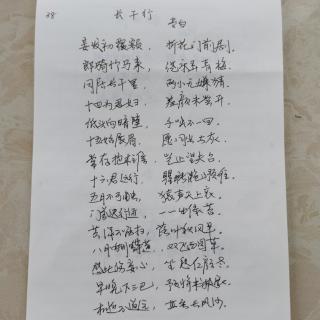 38 长干行
李白
妾发初覆额，折花门前剧。
郎骑竹马来，绕床弄青梅。
同居长干里，两小无嫌猜。
十四为君妇，羞颜未尝开。
低头向暗壁，千唤不一回。
十五始展眉，愿同尘与灰。
常存抱柱信，岂上望夫台。
十六君远行，瞿塘滟滪堆。
五月不可触，猿声天上哀。
门前迟行迹，一一生绿苔。
苔深不能扫，落叶秋风早。
八月蝴蝶黄，双飞西园草。
感此伤妾心，坐愁红颜老。
早晚下三巴，预将书报家。
相迎不道远，直至长风沙。